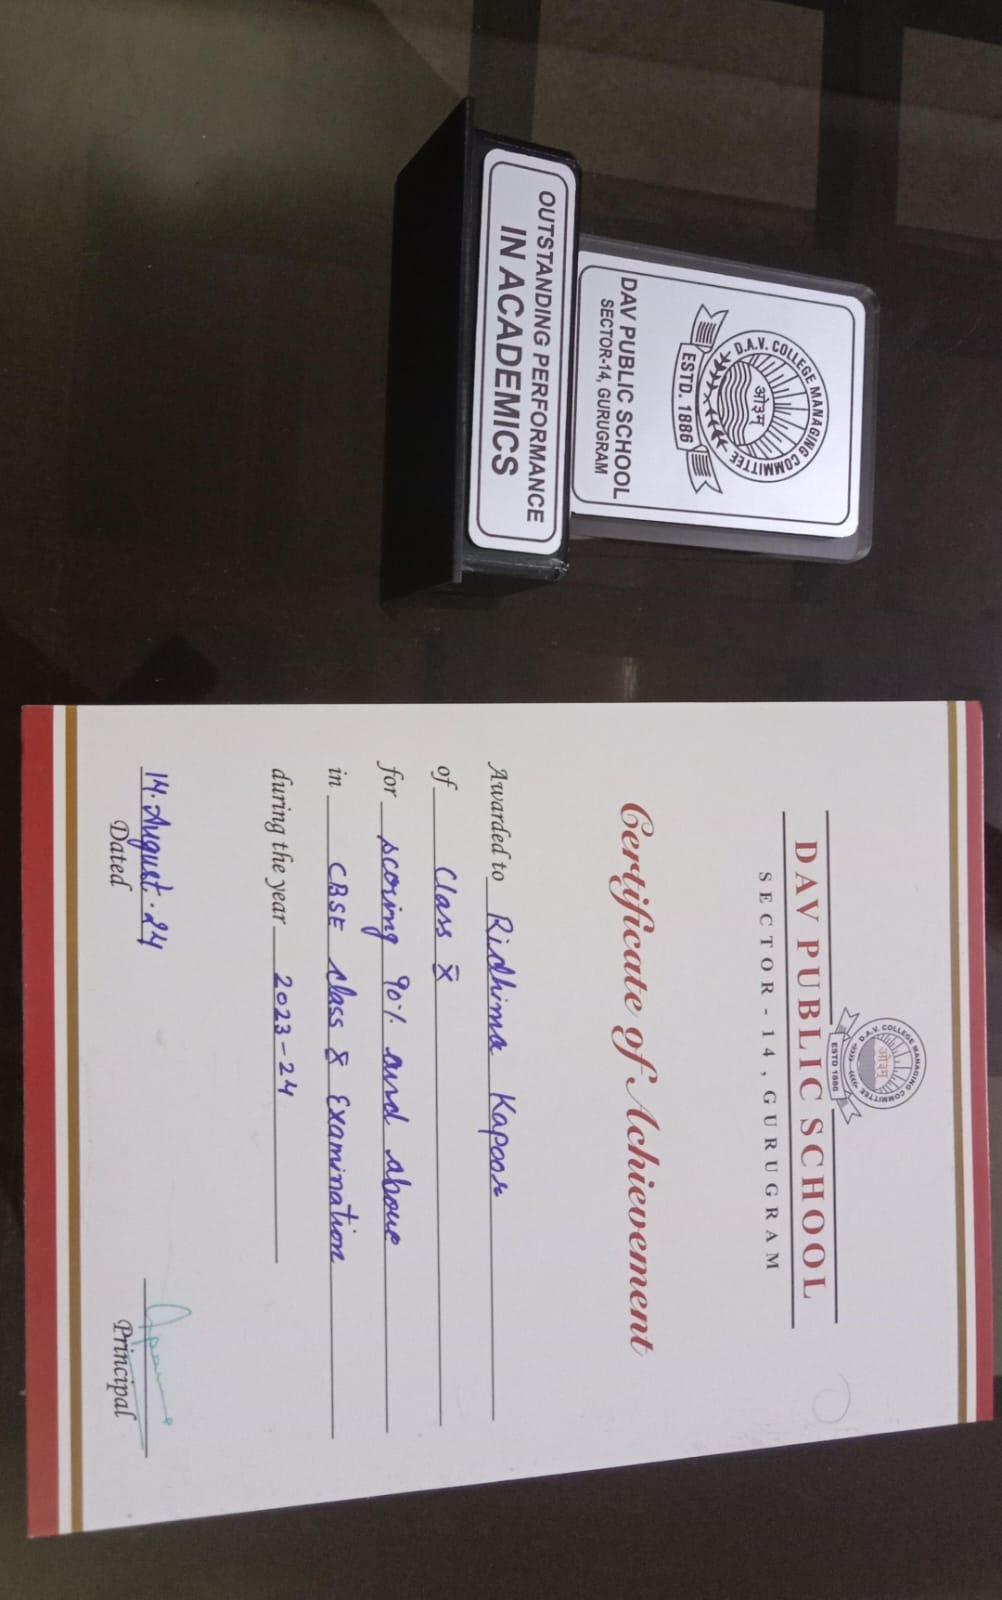 D.A.V. COLLEGE MANAGING COMMITTEE
ओ३म्
ESTD. 1886
DAV PUBLIC SCHOOL
SECTOR-14, GURUGRAM
OUTSTANDING PERFORMANCE
IN ACADEMICS
D.A.V. COLLEGE MANAGING COMMITTEE
ओ३म्
ESTD 1886
DAV PUBLIC SCHOOL
SECTOR-14, GURUGRAM
Certificate of Achievement
Awarded to Ridhima Kapoor
of Class X
for scoring 90% and above
in CBSE class X Examination
during the year 2023-24
14.August.24
Dated
Principal